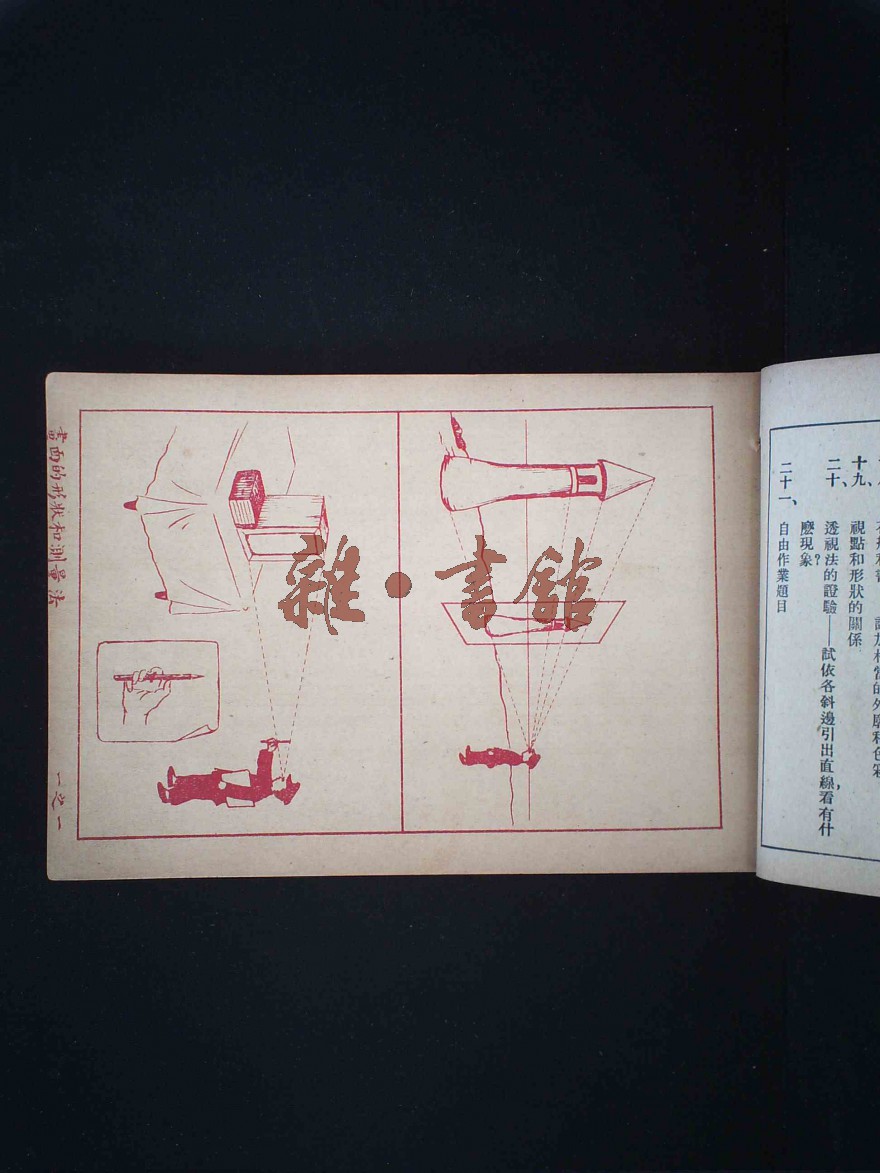 十九、視點和形狀的關係
二十、透視法的證驗——試依各斜邊引出直線，看有什
麽現象？
二十一、自由作業題目
畫面的形狀和測量法
一之一
雜·書館